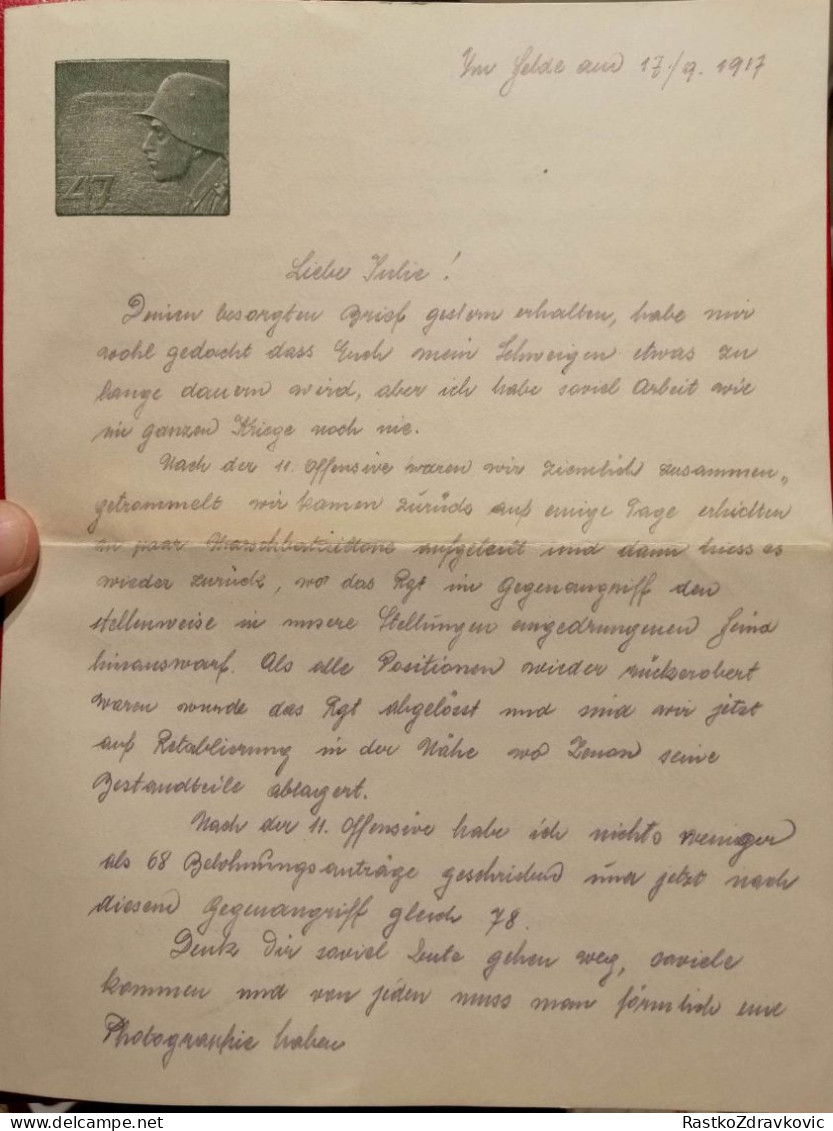 Im Felde am 17/9. 1917
47
Liebe Julie!
Deinen besorgten Brief gestern erhalten, habe mir
wohl gedacht dass Euch mein Schweigen etwas zu
lange dauern wird, aber ich habe soviel Arbeit wie
im ganzen Kriege noch nie.
Nach der 11. Offensive waren wir ziemlich zusammen„
getrommelt wir kamen zurück auf einige Tage erhielten
ein paar Marschbataillone aufgeteilt und dann hiess es
wieder zurück, wo das Rgt im Gegenangriff den
stellenweise in unsere Stellungen eingedrungenen Feind
hinauswarf. Als alle Positionen wieder rückerobert
waren wurde das Rgt abgelösst und sind wir jetzt
auf Retablierung in der Nähe wo Zenon seine
Bestandteile ablagert.
Nach der 11. Offensive habe ich nichts weniger
als 68 Belohnungsanträge geschrieben und jetzt nach
diesem Gegenangriff gleich 78.
Denk Dir soviel Leute gehen weg, soviele
kommen und von jeden muss man förmlich eine
Photographie haben
RastkoZdravkovic